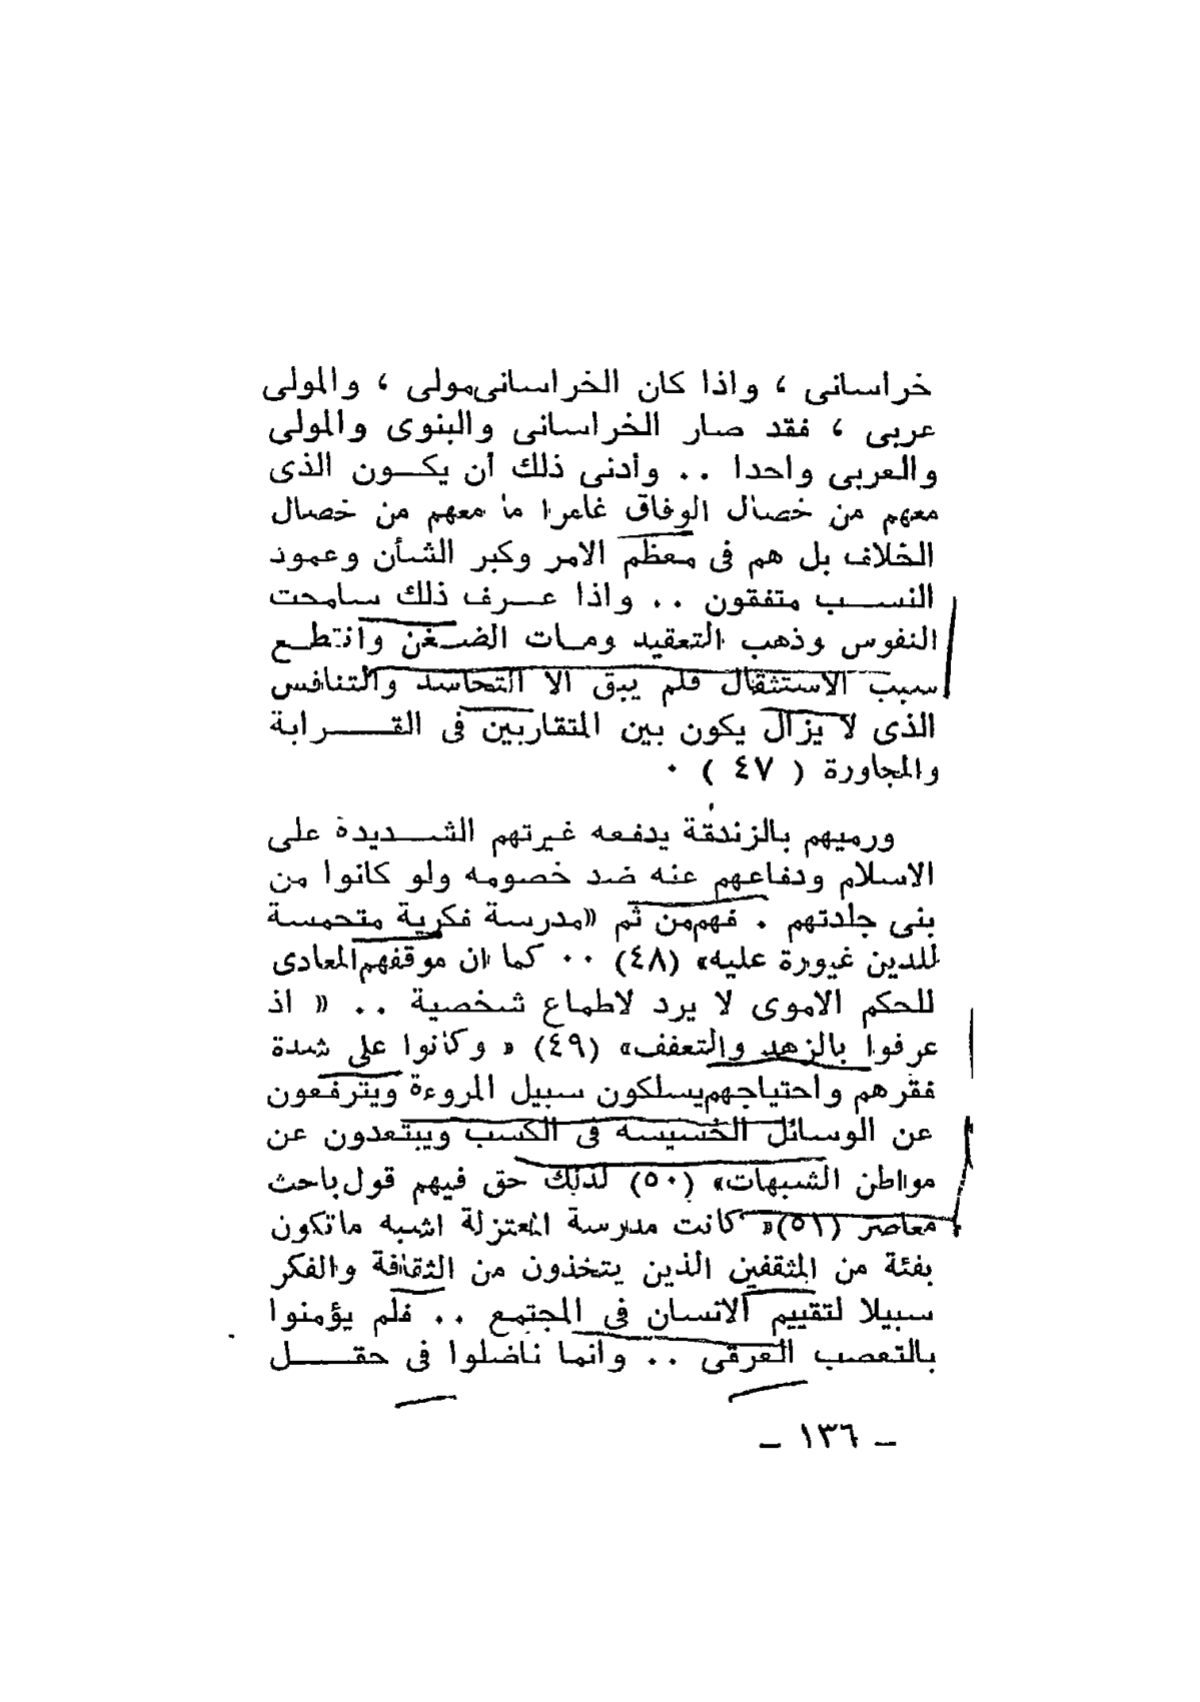 خراسانى ، واذا كان الخراسانى مولى ، والمولى
عربى ، فقد صار الخراسانى والبنوى والمولى
والعربى واحدا .. وأدنى ذلك أن يكون الذى
معهم من خصال الوفاق غامرا ما معهم من خصال
الخلاف بل هم فى معظم الامر وكبر الشأن وعمود
النسب متفقون .. واذا عرف ذلك سامحت
النفوس وذهب التعقيد ومات الضغن وانقطع
سبب الاستثقال فلم يبق الا التحاسد والتنافس
الذى لا يزال يكون بين المتقاربين فى القرابة
والمجاورة ( ٤٧ ) .
ورميهم بالزندقة يدفعه غيرتهم الشديدة على
الاسلام ودفاعهم عنه ضد خصومه ولو كانوا من
بنى جلدتهم . فهم من ثم «مدرسة فكرية متحمسة
للدين غيورة عليه» (٤٨) .. كما ان موقفهم المعادى
للحكم الاموى لا يرد لاطماع شخصية .. « اذ
عرفوا بالزهد والتعفف» (٤٩) « وكانوا على شدة
فقرهم واحتياجهم يسلكون سبيل المروءة ويترفعون
عن الوسائل الخسيسة فى الكسب ويبتعدون عن
مواطن الشبهات» (٥٠) لذلك حق فيهم قول باحث
معاصر (٥١)« كانت مدرسة المعتزلة اشبه ماتكون
بفئة من المثقفين الذين يتخذون من الثقافة والفكر
سبيلا لتقييم الانسان فى المجتمع .. فلم يؤمنوا
بالتعصب العرقى .. وانما ناضلوا فى حقل
– ١٣٦ –